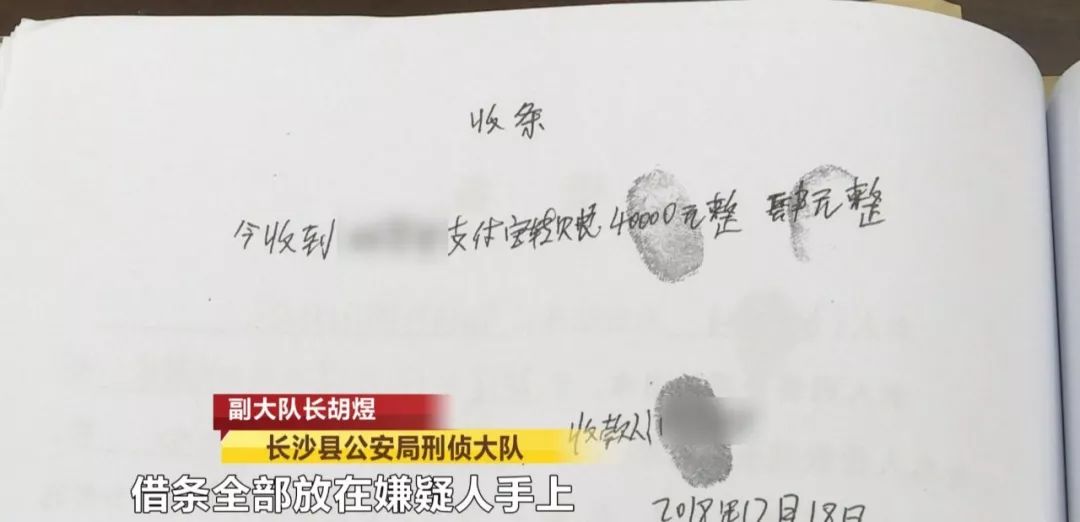 收条
今收到 支付宝转账40000元整 肆元整
副大队长胡煜
长沙县公安局刑侦大队
收款人
借条全部放在嫌疑人手上
2018年12月18日